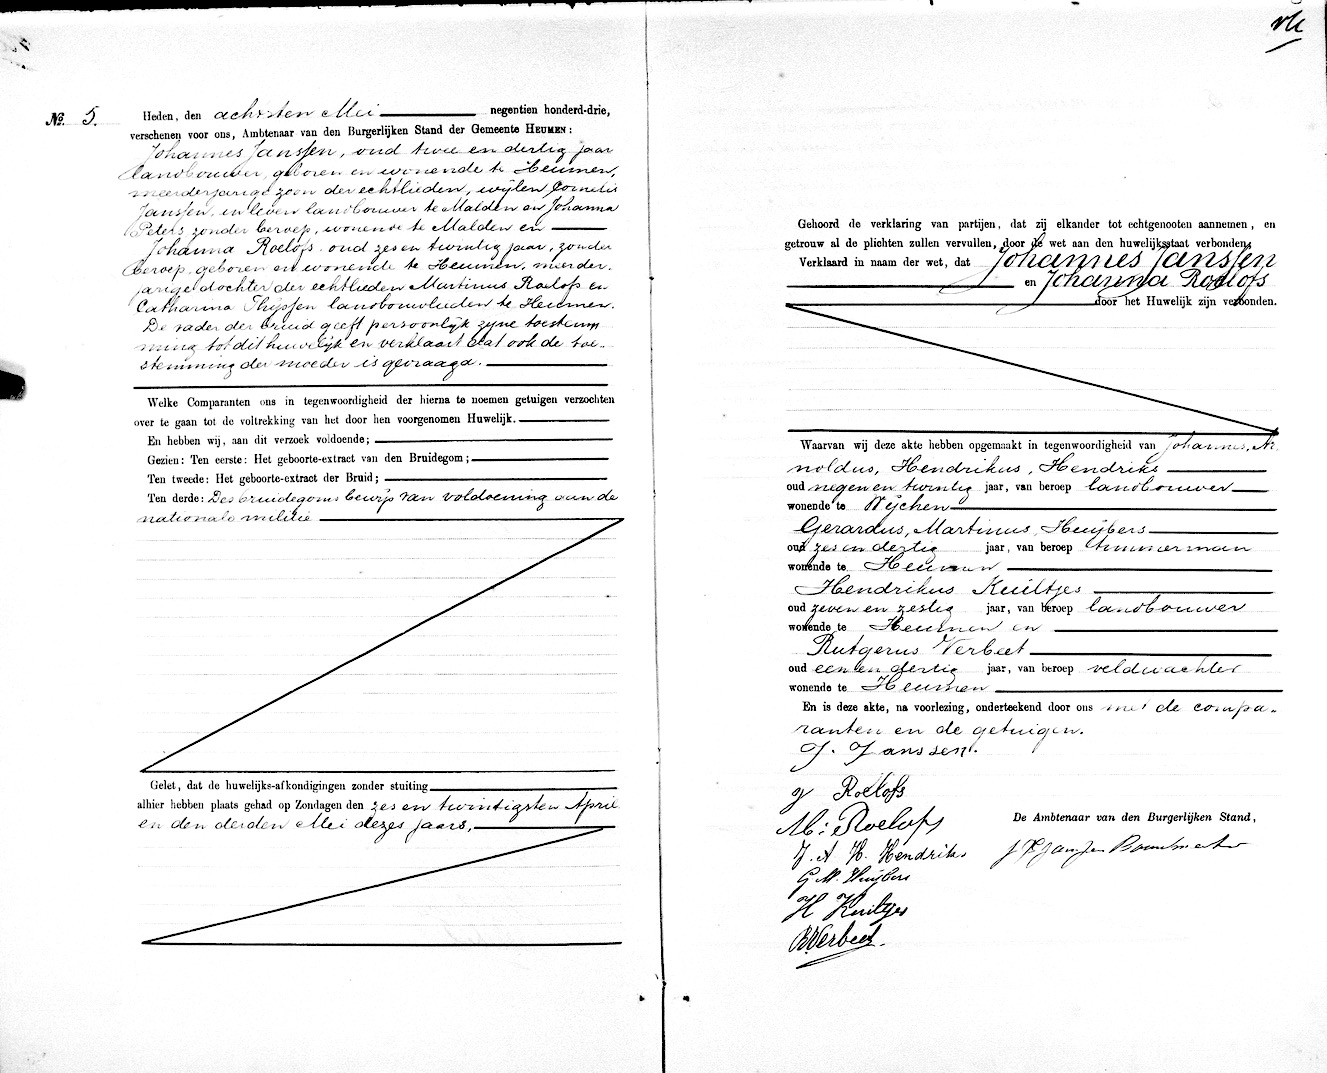 vli
No. 5.
Heden, den achtsten Mei negentien honderd-drie,
verschenen voor ons, Ambtenaar van den Burgerlijken Stand der Gemeente HEUMEN:
Johannes Janssen, oud twee en dertig jaar
landbouwer, geboren en wonende te Heumen,
meerderjarige zoon der echtlieden, wijlen Cornelis
Janssen, in leven landbouwer te Malden en Johanna
Peters zonder beroep, wonende te Malden en
Johanna Roelofs oud zes en twintig jaar, zonder
beroep, geboren en wonende te Heumen, meerder-
jarige dochter der echtlieden Martinus Roelofs en
Catharina Thijssen landbouwlieden te Heumen.
De vader der bruid geeft persoonlijk zijne toestem
ming tot dit huwelijk en verklaart dat ook de toe-
stemming der moeder is gevraagd.
Welke Comparanten ons in tegenwoordigheid der hierna te noemen getuigen verzochten
over te gaan tot de voltrekking van het door hen voorgenomen Huwelijk.
En hebben wij, aan dit verzoek voldoende;
Gezien: Ten eerste: Het geboorte-extract van den Bruidegom;
Ten tweede: Het geboorte-extract der Bruid;
Ten derde: Des bruidegoms bewijs van voldoening aan de
nationale militie
Gelet, dat de huwelijks-afkondigingen zonder stuiting
alhier hebben plaats gehad op Zondagen den zes en twintigsten April
en den derden Mei dezes jaars,
Gehoord de verklaring van partijen, dat zij elkander tot echtgenooten aannemen, en
getrouw al de plichten zullen vervullen, door de wet aan den huwelijksstaat verbonden,
Verklaard in naam der wet, dat Johannes Janssen
en Johanna Roelofs
door het Huwelijk zijn verbonden.
Waarvan wij deze akte hebben opgemaakt in tegenwoordigheid van Johannes, Ar
noldus, Hendrikus, Hendriks
oud negen en twintig jaar, van beroep landbouwer
wonende te Wijchen
Gerardus, Martinus, Huijbers
oud zes en dertig jaar, van beroep timmerman
wonende te Heumen
Hendrikus Kuiltjes
oud zeven en zestig jaar, van beroep landbouwer
wonende te Heumen en
Rutgerus Verbeet
oud een en dertig jaar, van beroep veldwachter
wonende te Heumen
En is deze akte, na voorlezing, onderteekend door ons met de compa-
ranten en de getuigen.
J. Janssen.
J Roelofs
M: Roelofs
De Ambtenaar van den Burgerlijken Stand,
J. A H. Hendriks
G. M. Huijbers
H Kuiltjes
R Verbeet.